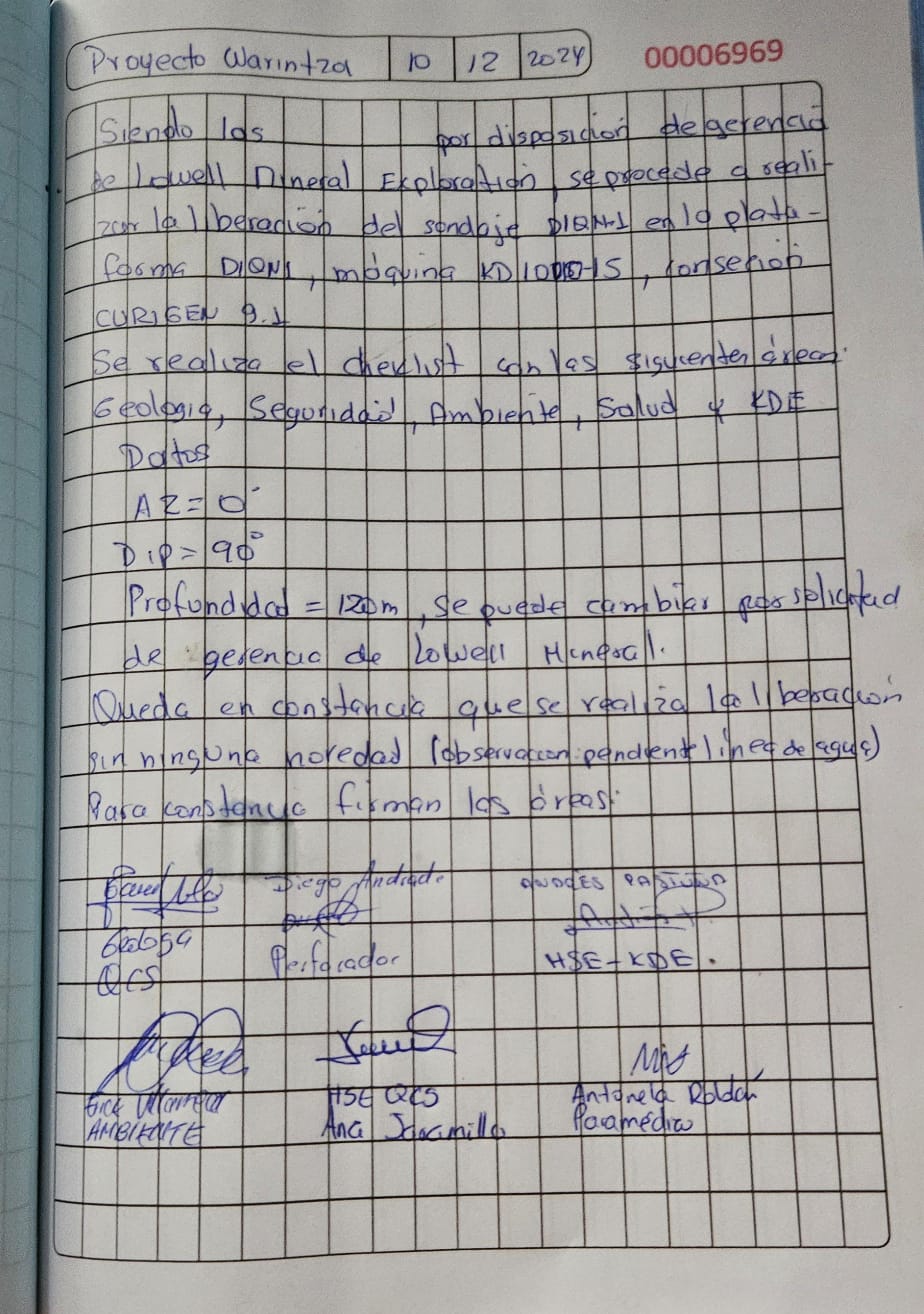 Proyecto Warintza 10 12 2024 00006969
Siendo las por disposición de gerencia
de Lowell Mineral Exploration, se procede a reali-
zar la liberación del sondaje DIQN-1 en la plata-
forma DIQN1, máquina KD1000-15, consención
CURIGEN 9.1
Se realiza el checklist con las siguientes áreas:
Geología, Seguridad, Ambiente, Salud y KDE
Datos
AZ = 0°
Dip = 90°
Profundidad = 1200m, se puede cambiar por solicitud
de gerencia de Lowell Mineral.
Queda en constancia que se realiza la liberación
sin ninguna novedad (observacion: pendiente linea de agua)
Para constancia firman las áreas:
Diego Andrade
Geología Perforador HSE - KDE.
QCS
HSE QCS Antonela Roldán
AMBIENTE Ana Jaramillo Paramédico